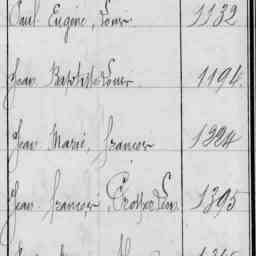 Paul Eugène, Louis 1132
Jean Baptiste Louis 1194.
Jean Marie, francois 1324
Jean francois, 1395